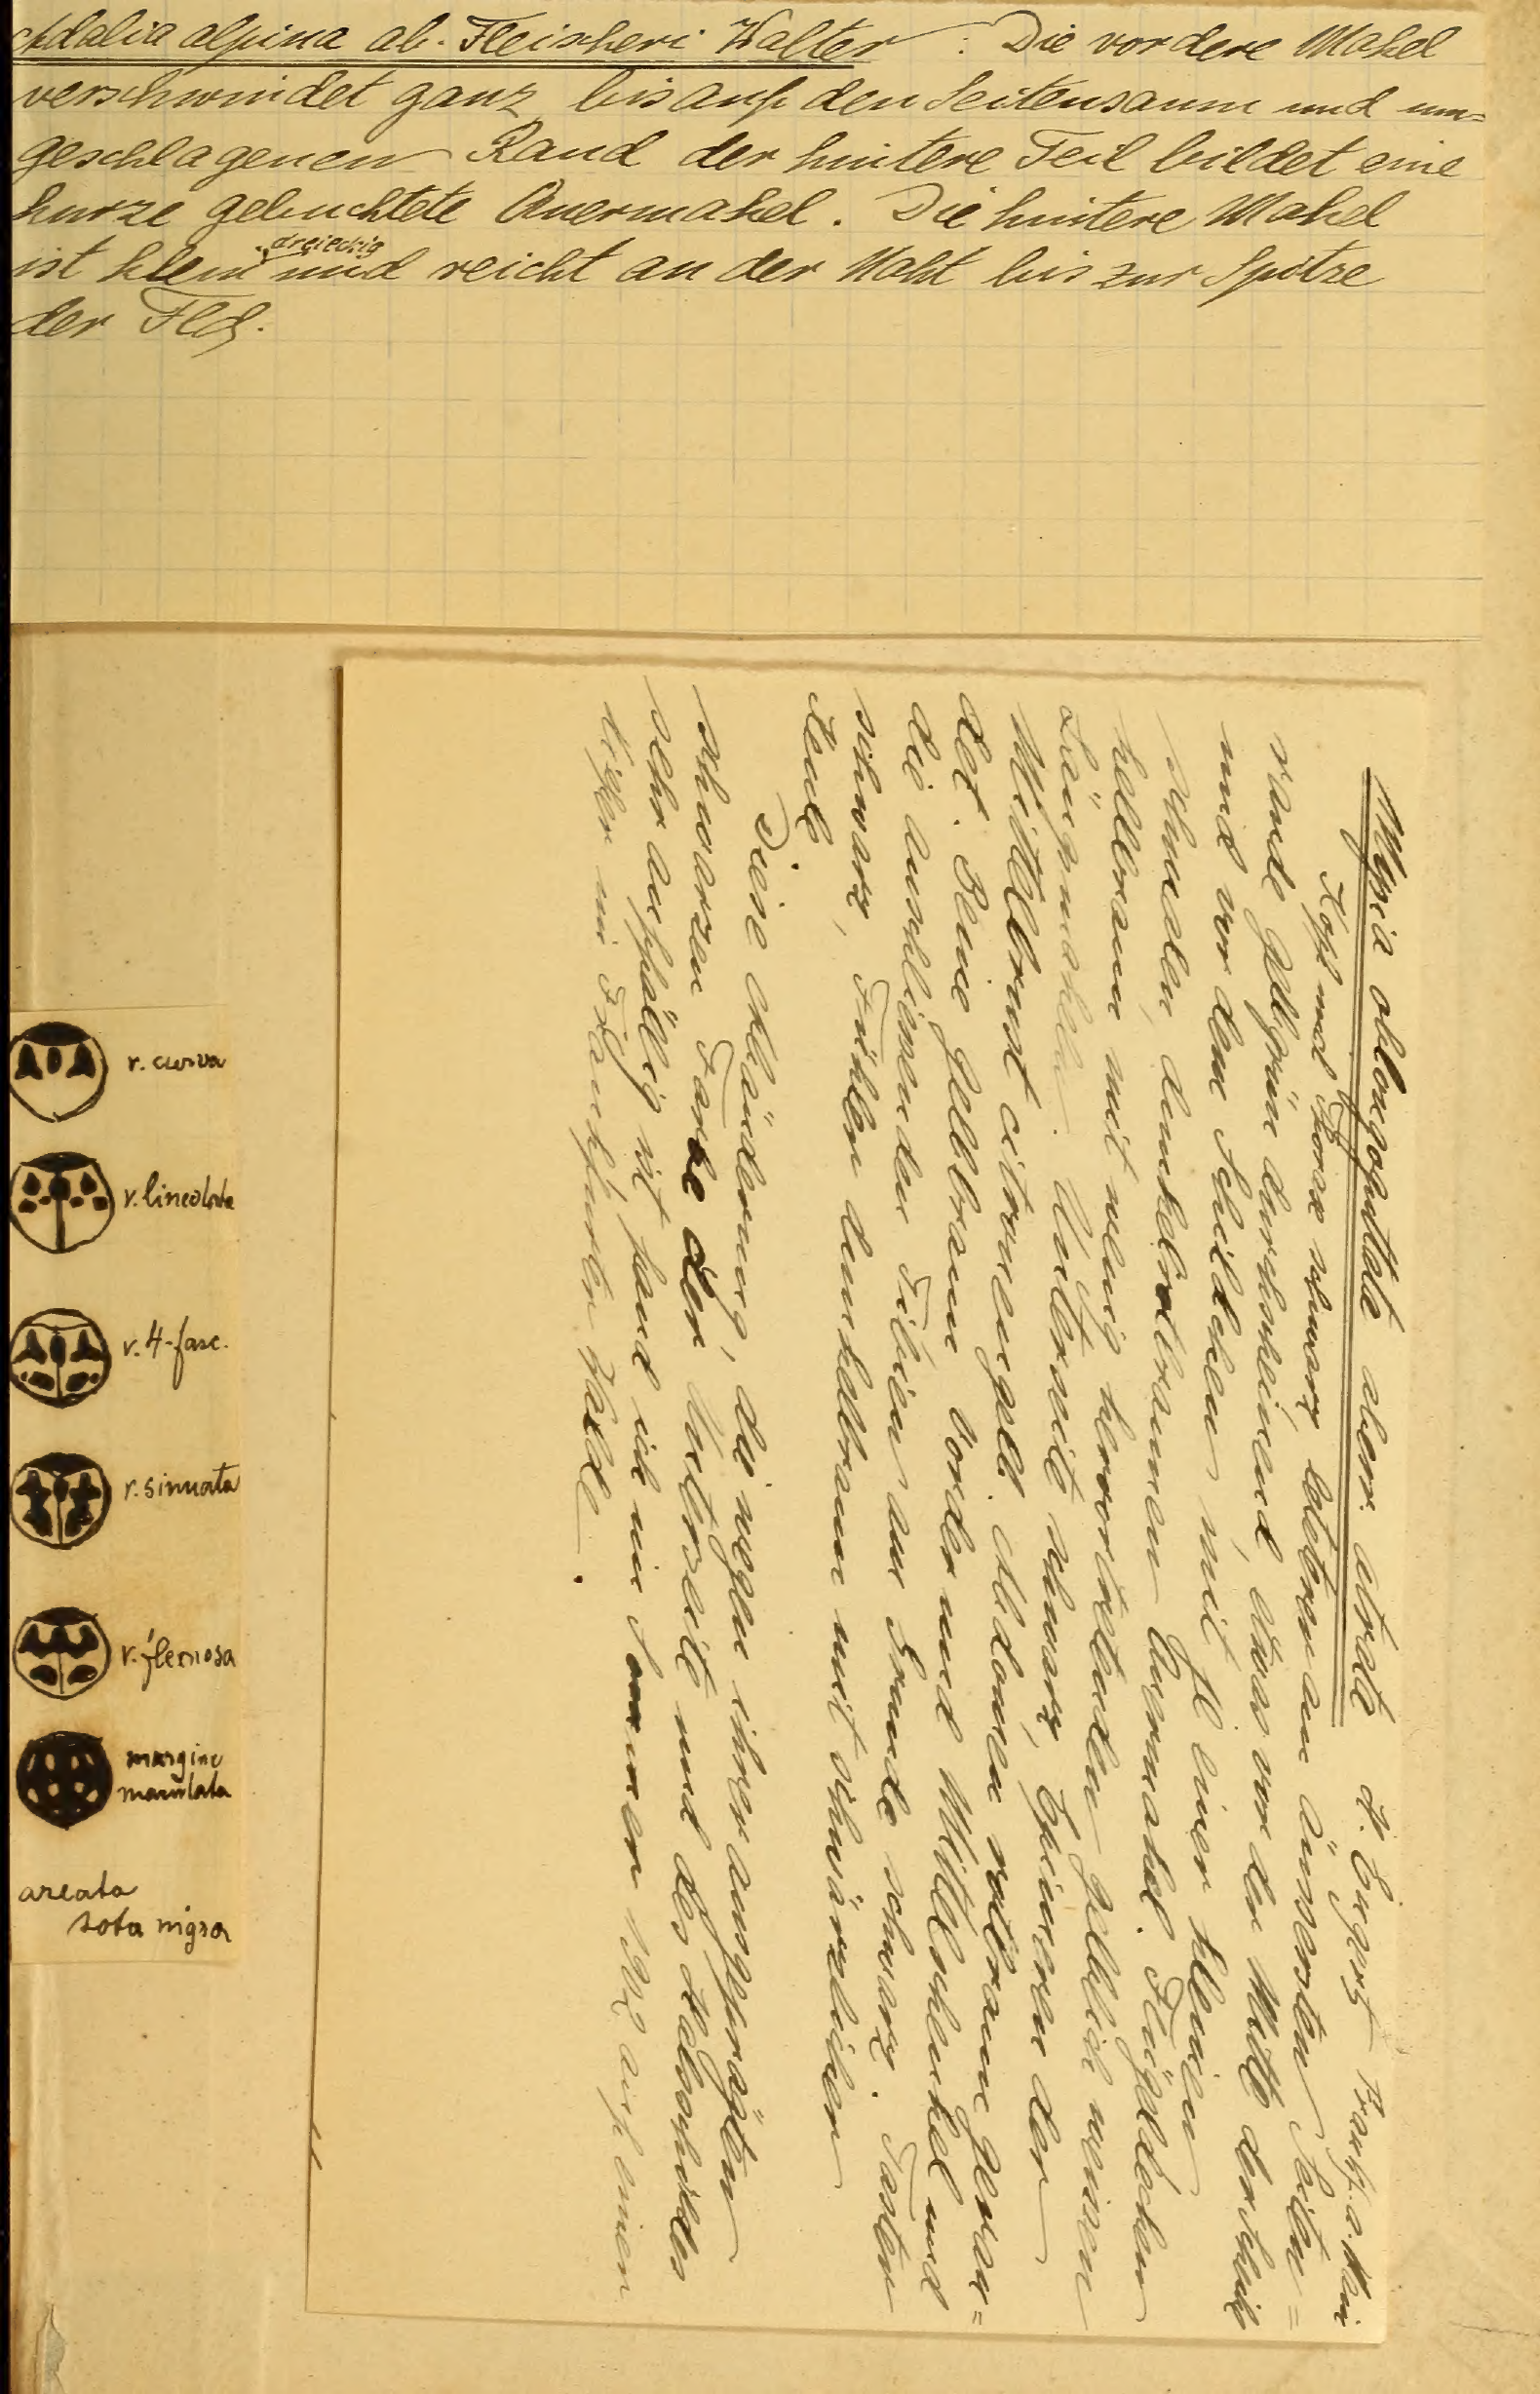 Adalia alpina ab. Fleischeri Walter: Die vordere Makel
verschwindet ganz bis auf den Seitensaum und um=
geschlagenen Rand der hintere Teil bildet eine
kurze gebuchtete Quermakel. Die hintere Makel
ist klein dreieckig und reicht an der Naht bis zur Spitze
der Fld.
oblongoguttata aberr. atrata Frankf. a. Main
Kopf und Thorax schwarz, letztrer am äussersten Seiten=
rande gelbgrün durchscheinend, etwas vor der Mitte der Scheib
und vor dem Schildchen mit je einer kleinen
schmalen, dunkelrotbraunen Quermakel. Flügeldecken
hellbraun mit wenig hervortretenden gelblich weissen
Längsmakeln. Unterseite schwarz, Epimeren der
Mittelbrust citronengelb. Abdomen rotbraun geran=
det. Beine gelbbraun Vorder und Mittelschenkel und
die Tibien am Grunde schwarz. Taster
schwarz, Fühler dunkelbraun mit schwärzlicher
Keule
Diese Abänderung, die wegen ihrer ausgeprägten
schwarzen Farbe der Unterseite und des Halsschildes
sehr auffällig ist fand ich im Sommer auf einer
im Frankfurter Walde.
v. curva
v. lineolata
v. 4-fasc.
v. sinuata
v. flexuosa
margine
maculata
areata
tota nigra